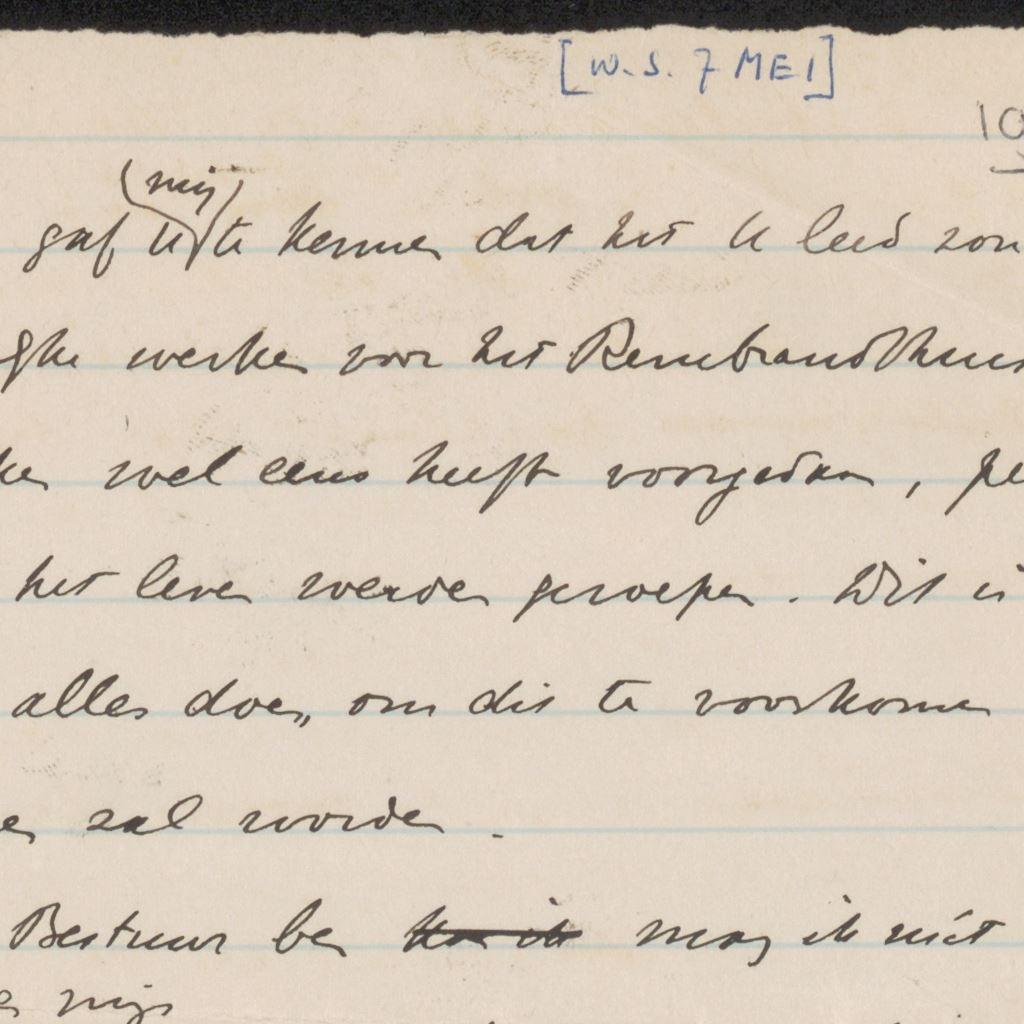 [W.S. 7 MEI]
10
(mij)
gaf U te kennen dat het U leed zou
werken voor het Rembrandthuis
wel eens heeft voorgedaan, pe
het leven werden geroepen. Dit is
alles doen, om dit te voorkomen
zal worden.
Bestuur ben mag ik niet
mijn